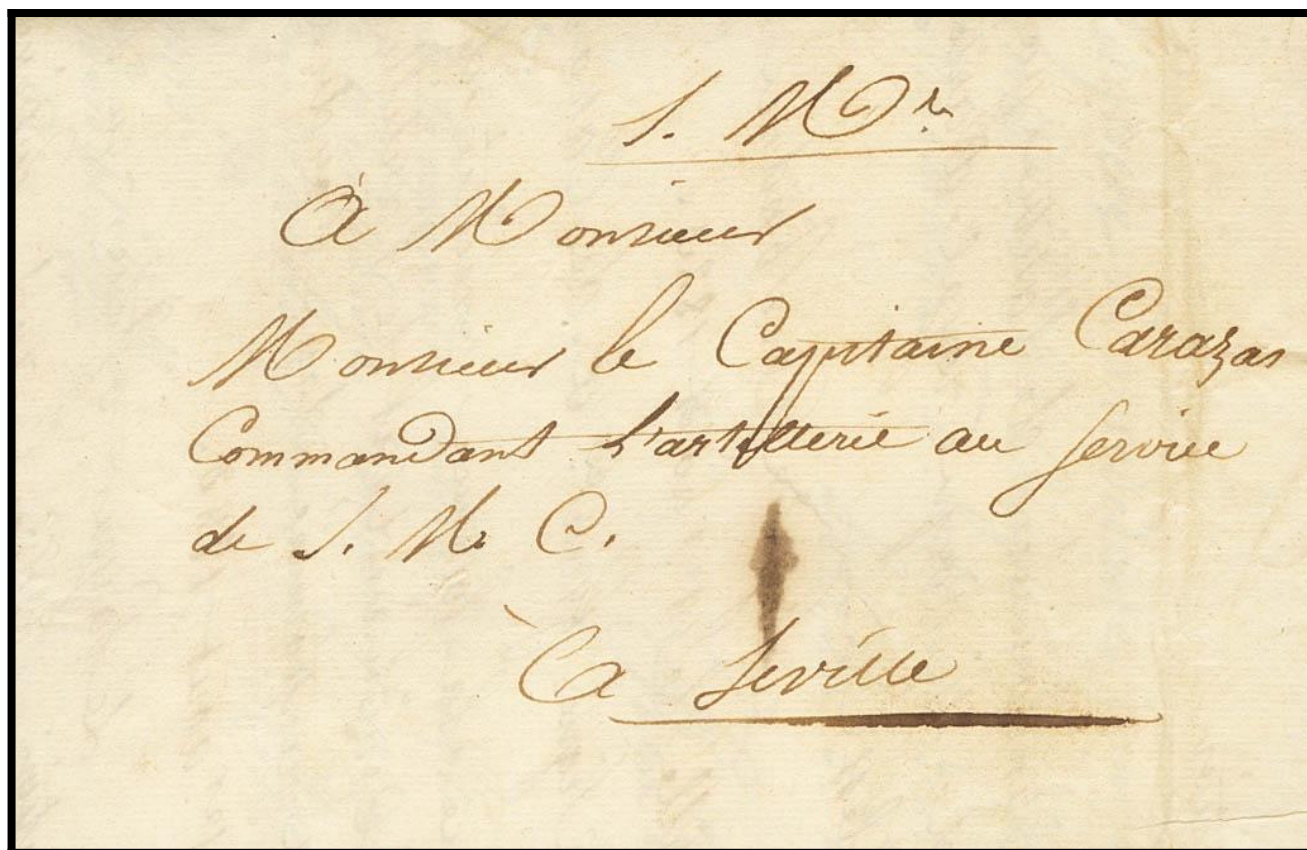 S. M.
À Monsieur
Monsieur le Capitaine Carazas
Commandant l'artillerie au service
de S. M. C.
À Seville